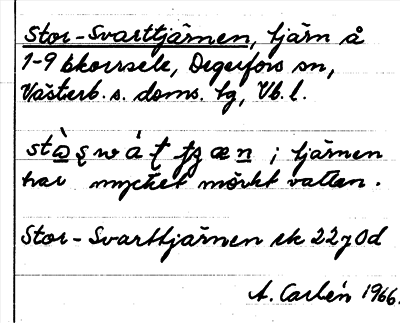 Stor-Svarttjärnen, tjärn å
1-9 Ekorrsele, Degerfors sn,
Västerb. s. doms. tg, Vb. l.
tjärnen
har mycket mörkt vatten.
Stor-Svarttjärnen ek 22 7 0d
A. Carlén 1966.